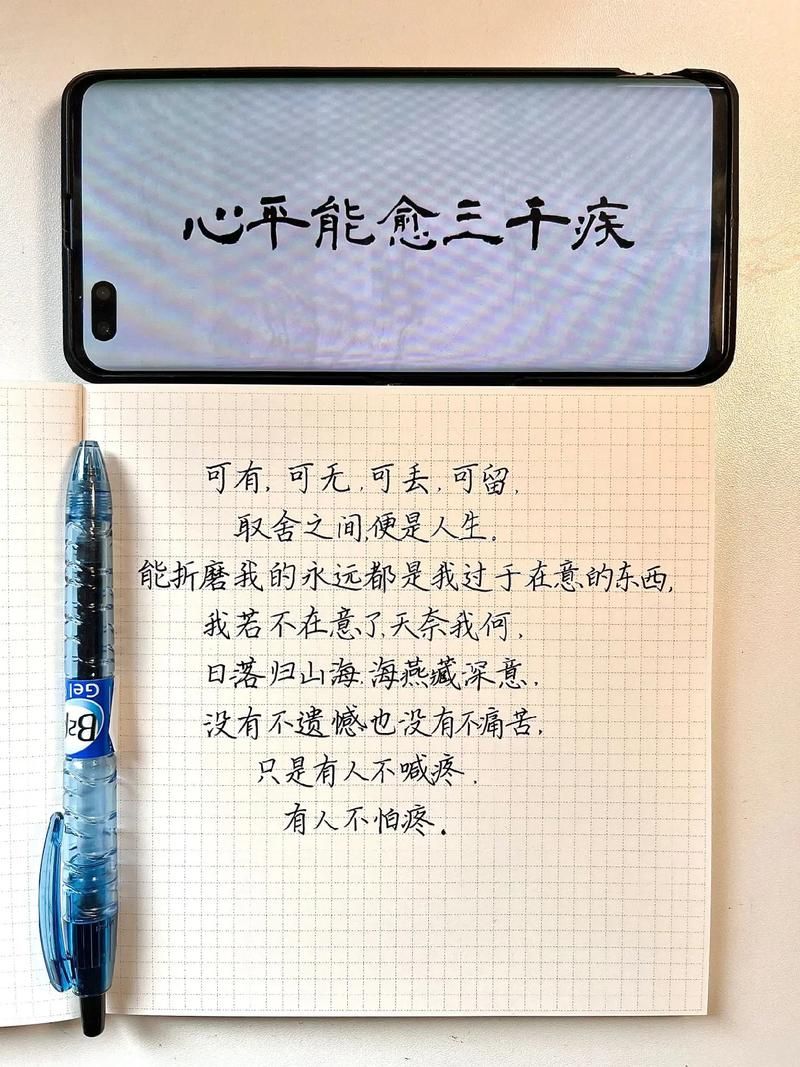 心平能愈三千疾
可有,可无,可丢,可留,
取舍之间,便是人生。
能折磨我的永远都是我过于在意的东西,
我若不在意了,天奈我何,
日落归山海,海燕藏深意,
没有不遗憾,也没有不痛苦,
只是有人不喊疼,
有人不怕疼.
Gel
B2P